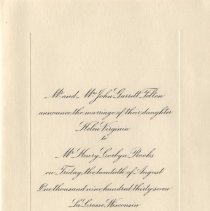 Mr. and Mrs. John Garrett
announce the marriage of their daughter
Helen Virginia
to
Mr. Henry
on Friday, the twentieth of August
One thousand nine hundred thirty-seven
La Crosse, Wisconsin